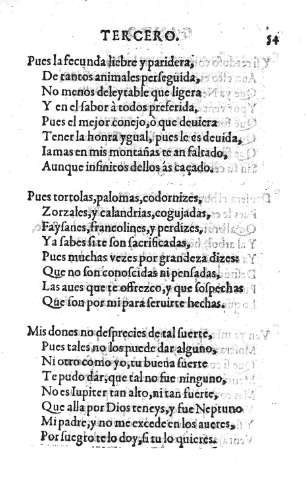 TERCERO. 54
Pues la fecunda liebre y paridera,
De tantos animales perseguida,
No menos deleytable que ligera
Y en el sabor à todos preferida,
Pues el mejor conejo, ò que deuiera
Tener la honra ygual, pues le es deuida,
Iamas en mis montañas te an faltado,
Aunque infinitos dellos às caçado.
Pues tortolas, palomas, codornizes,
Zorzales, y calandrias, cogujadas,
Faysanes, francolines, y perdizes,
Ya sabes si te son sacrificadas,
Pues muchas vezes por grandeza dizes:
Que no son conoscidas ni pensadas,
Las aues que te offrezco, y que sospechas
Que son por mi para seruirte hechas.
Mis dones no desprecies de tal suerte,
Pues tales no los puede dar alguno,
Ni otro como yo, tu buena suerte
Te pudo dar, que tal no fue ninguno,
No es Iupiter tan alto, ni tan fuerte,
Que alla por Dios teneys, y fue Neptuno
Mi padre, y no me excede en los aueres,
Por suegro te lo doy, si tu lo quieres.